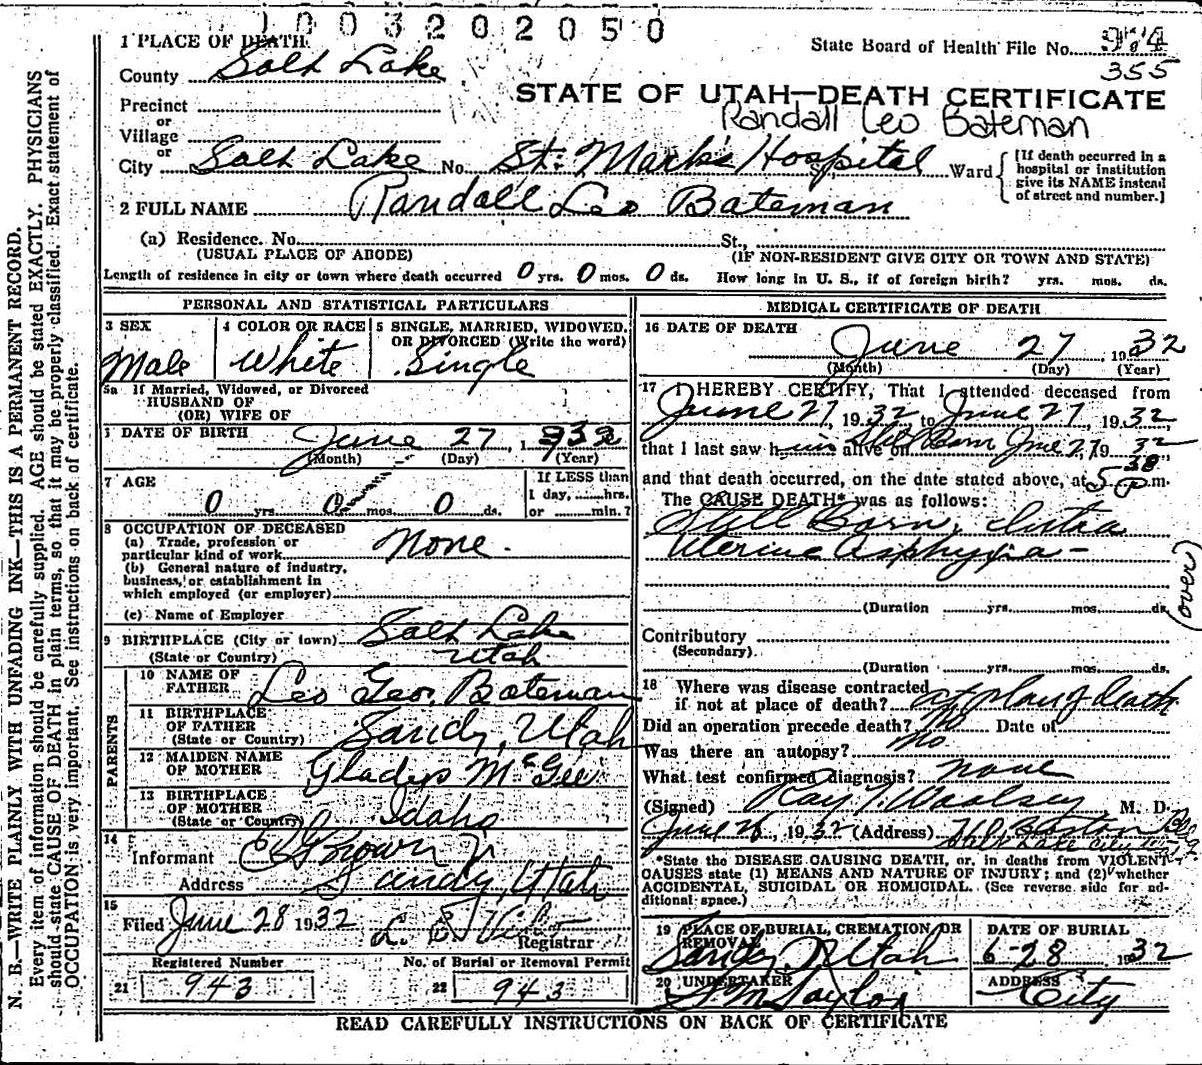 1003202050
1 PLACE OF DEATH
State Board of Health File No. 974
355
County Salt Lake
STATE OF UTAH—DEATH CERTIFICATE
Precinct
or
Randall Leo Bateman
Village
or
City Salt Lake No. St. Mark's Hospital St., Ward
[If death occurred in a hospital or institution give its NAME instead of street and number.]
2 FULL NAME Randall Leo Bateman
(a) Residence. No. St.,
(USUAL PLACE OF ABODE) (IF NON-RESIDENT GIVE CITY OR TOWN AND STATE)
Length of residence in city or town where death occurred 0 yrs. 0 mos. 0 ds. How long in U. S., if of foreign birth? yrs. mos. ds.
PERSONAL AND STATISTICAL PARTICULARS
3 SEX 4 COLOR OR RACE 5 SINGLE, MARRIED, WIDOWED,
OR DIVORCED (Write the word)
Male White Single
5a If Married, Widowed, or Divorced
HUSBAND OF
(OR) WIFE OF
6 DATE OF BIRTH June 27, 1932
(Month) (Day) (Year)
7 AGE
0 yrs. 0 mos. 0 ds.
If LESS than
1 day, hrs.
or min.?
8 OCCUPATION OF DECEASED
(a) Trade, profession or
particular kind of work None.
(b) General nature of industry,
business, or establishment in
which employed (or employer)
(c) Name of Employer
9 BIRTHPLACE (City or town) Salt Lake
(State or Country) Utah
PARENTS
10 NAME OF
FATHER Leo Geo. Bateman
11 BIRTHPLACE
OF FATHER
(State or Country) Sandy, Utah
12 MAIDEN NAME
OF MOTHER Gladys McGee
13 BIRTHPLACE
OF MOTHER
(State or Country) Idaho
14
Informant Brown
Address Sandy, Utah
15
Filed June 28 1932
Registrar
Registered Number No. of Burial or Removal Permit
21 943 22 943
MEDICAL CERTIFICATE OF DEATH
16 DATE OF DEATH
June 27, 1932
(Month) (Day) (Year)
17 I HEREBY CERTIFY, That I attended deceased from
June 27, 1932 to June 27, 1932,
that I last saw him alive on Still Born June 27, 1932
and that death occurred, on the date stated above, at 5 30 p.m.
The CAUSE DEATH* was as follows:
Still Born, Intra
Uterine asphyxia -
(over)
(Duration yrs. mos. ds.
Contributory
(Secondary)
(Duration yrs. mos. ds.
18 Where was disease contracted
if not at place of death? at place of death
Did an operation precede death? No Date of
Was there an autopsy? No
What test confirmed diagnosis? none
(Signed) Ray T. Woolsey M. D.
June 28, 1932 (Address)
Salt Lake City
*State the DISEASE CAUSING DEATH, or, in deaths from VIOLENT
CAUSES state (1) MEANS AND NATURE OF INJURY; and (2) whether
ACCIDENTAL, SUICIDAL OR HOMICIDAL. (See reverse side for ad-
ditional space.)
19 PLACE OF BURIAL, CREMATION OR
REMOVAL
Sandy, Utah
DATE OF BURIAL
6-28 1932
20 UNDERTAKER
S M Taylor
ADDRESS
City
READ CAREFULLY INSTRUCTIONS ON BACK OF CERTIFICATE
N. B.—WRITE PLAINLY WITH UNFADING INK—THIS IS A PERMANENT RECORD.
Every item of information should be carefully supplied. AGE should be stated EXACTLY. PHYSICIANS
should state CAUSE OF DEATH in plain terms, so that it may be properly classified. Exact statement of
OCCUPATION is very important. See instructions on back of certificate.